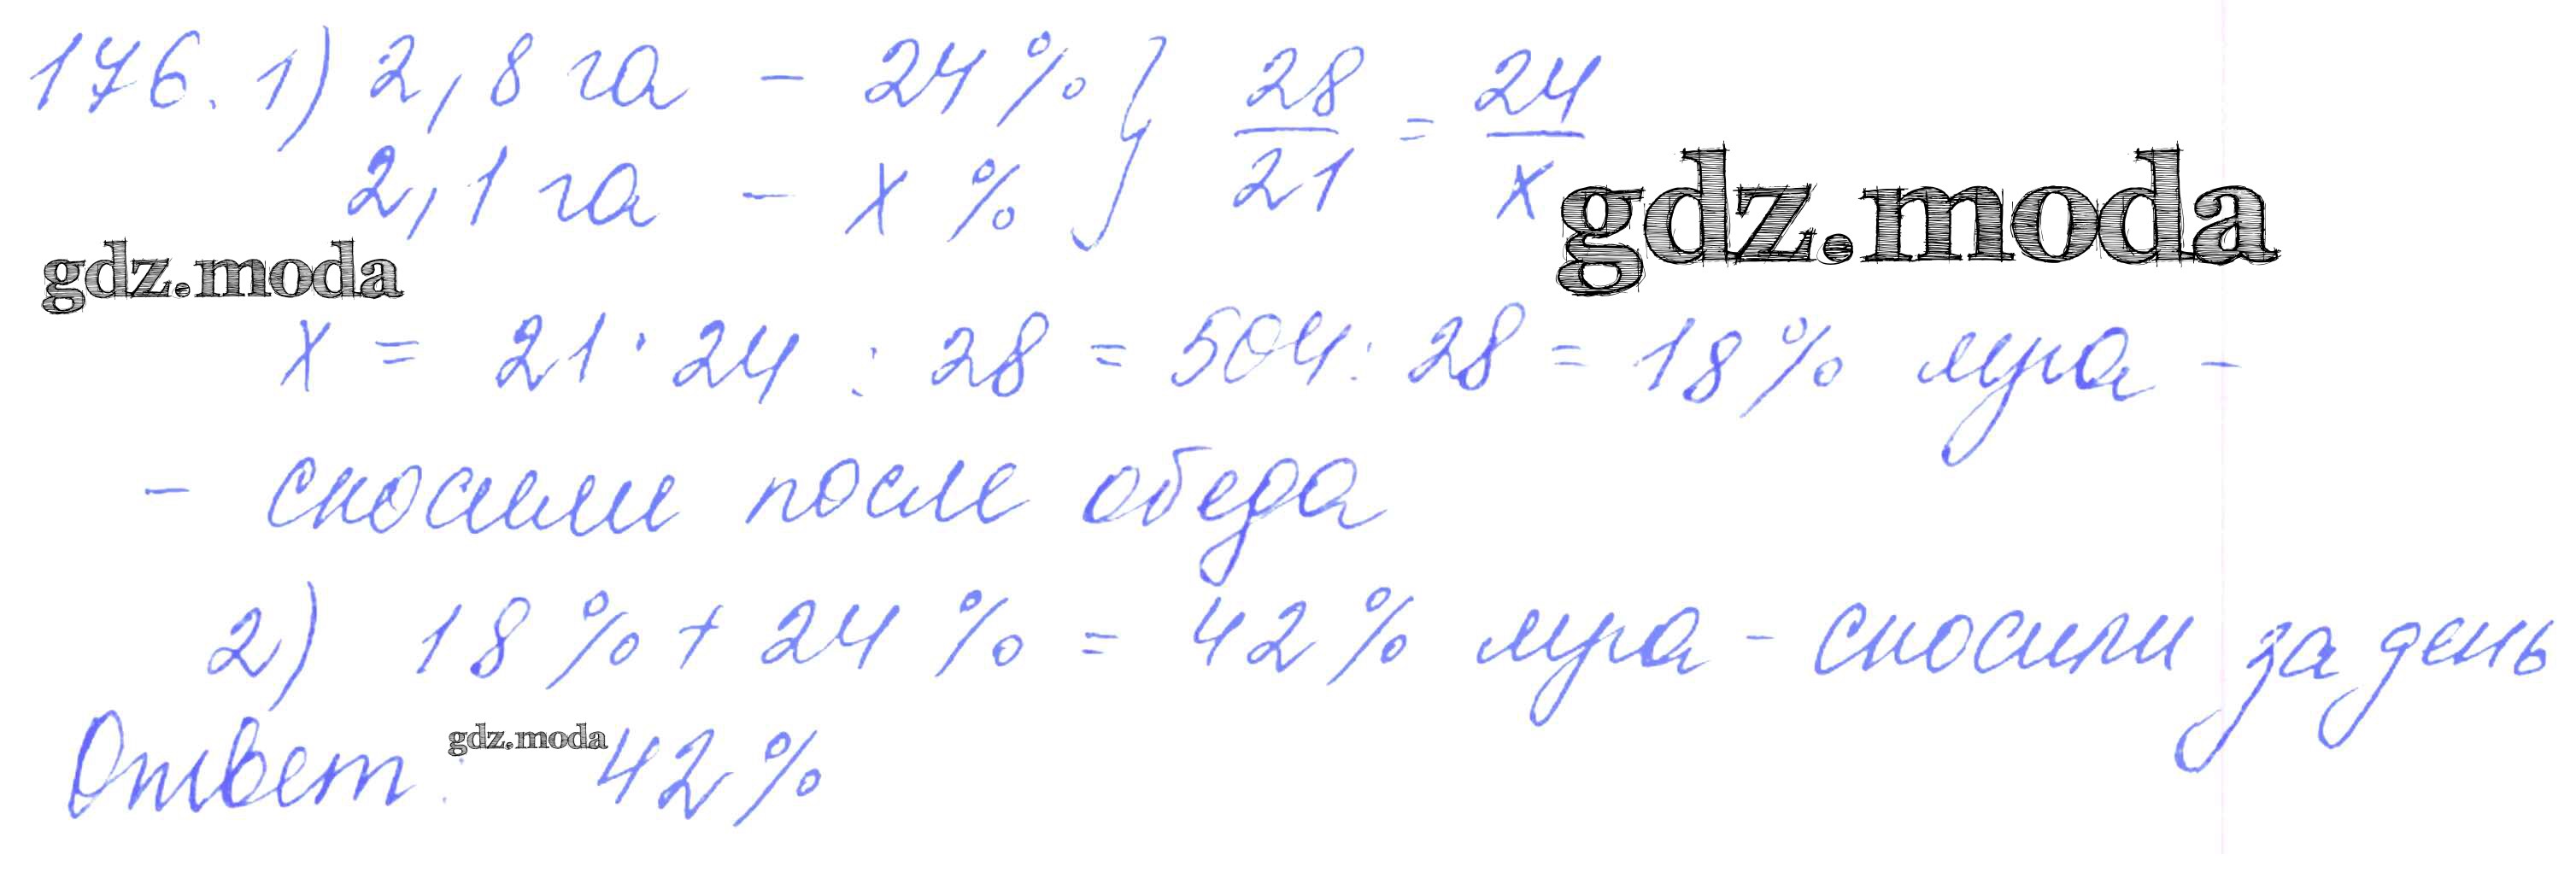 176. 1) 2,8 га - 24% } 28/21 = 24/x
2,1 га - x %
gdz.moda
gdz.moda
x = 21 · 24 : 28 = 504 : 28 = 18% луга -
- скосили после обеда
2) 18% + 24% = 42% луга - скосили за день
Ответ: 42%
gdz.moda